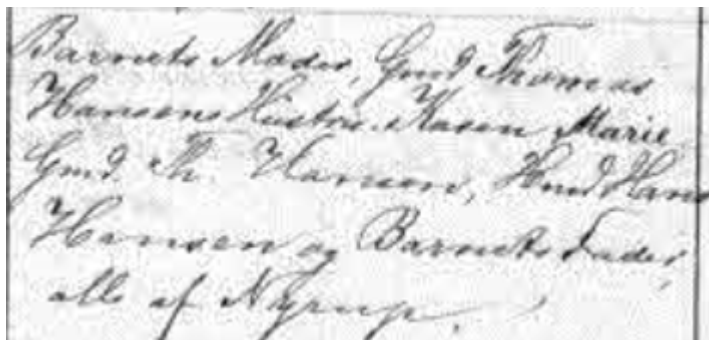 Barnets Moder, Gmd Thomas
Hansens Hustru Karen Marie
Gmd. Th. Hansen, Hmd Hans
Hansen og Barnets Fader,
alle af Nyrup.